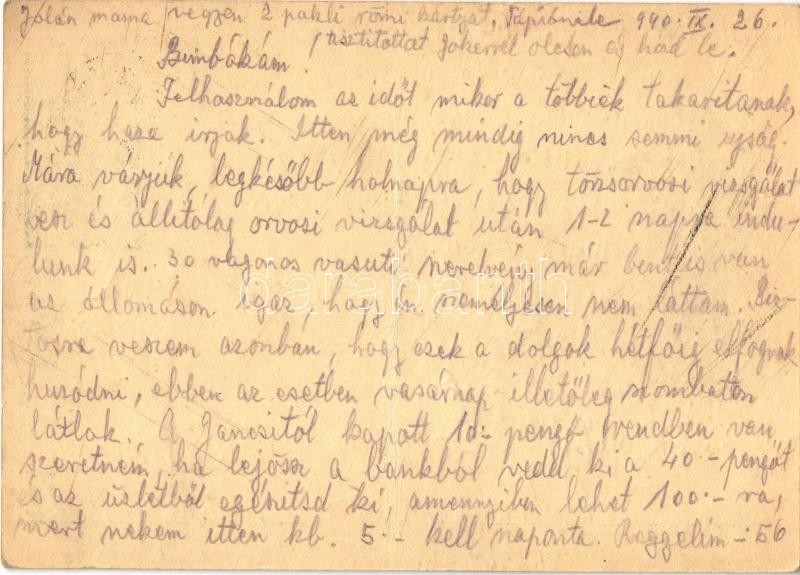 Jolán mama vegyen 2 pakli römi kártyát, Tápiósüle 940. IX. 26.
(tisztitottat Jokerrel olcson és had le.
Bimbákám
Felhasználom az időt mikor a többiek takaritanak,
hogy haza irjak. Itten még mindig nincs semmi ujság.
Mára várjuk, legkésőbb holnapra, hogy törzsorvosi vizsgálat
lesz és állitólag orvosi vizsgálat után 1-2 napra indu-
lunk is. 30 vagonos vasuti szerelvény már bent is van
az állomáson igaz, hogy én személyesen nem láttam. Biz-
tosra veszem azonban, hogy ezek a dolgok hétfőig elfognak
huzódni, ebben az esetben vasárnap illetőleg szombaton
látlak. A Jancsitól kapott 10.- pengő rendben van,
szeretném, ha lejössz a bankból vedd ki a 40.- pengőt
és az üzletből egészitsd ki, amennyiben lehet 100.- ra,
mert nekem itten kb. 5.- kell naponta. Reggelim -.56
darabanth